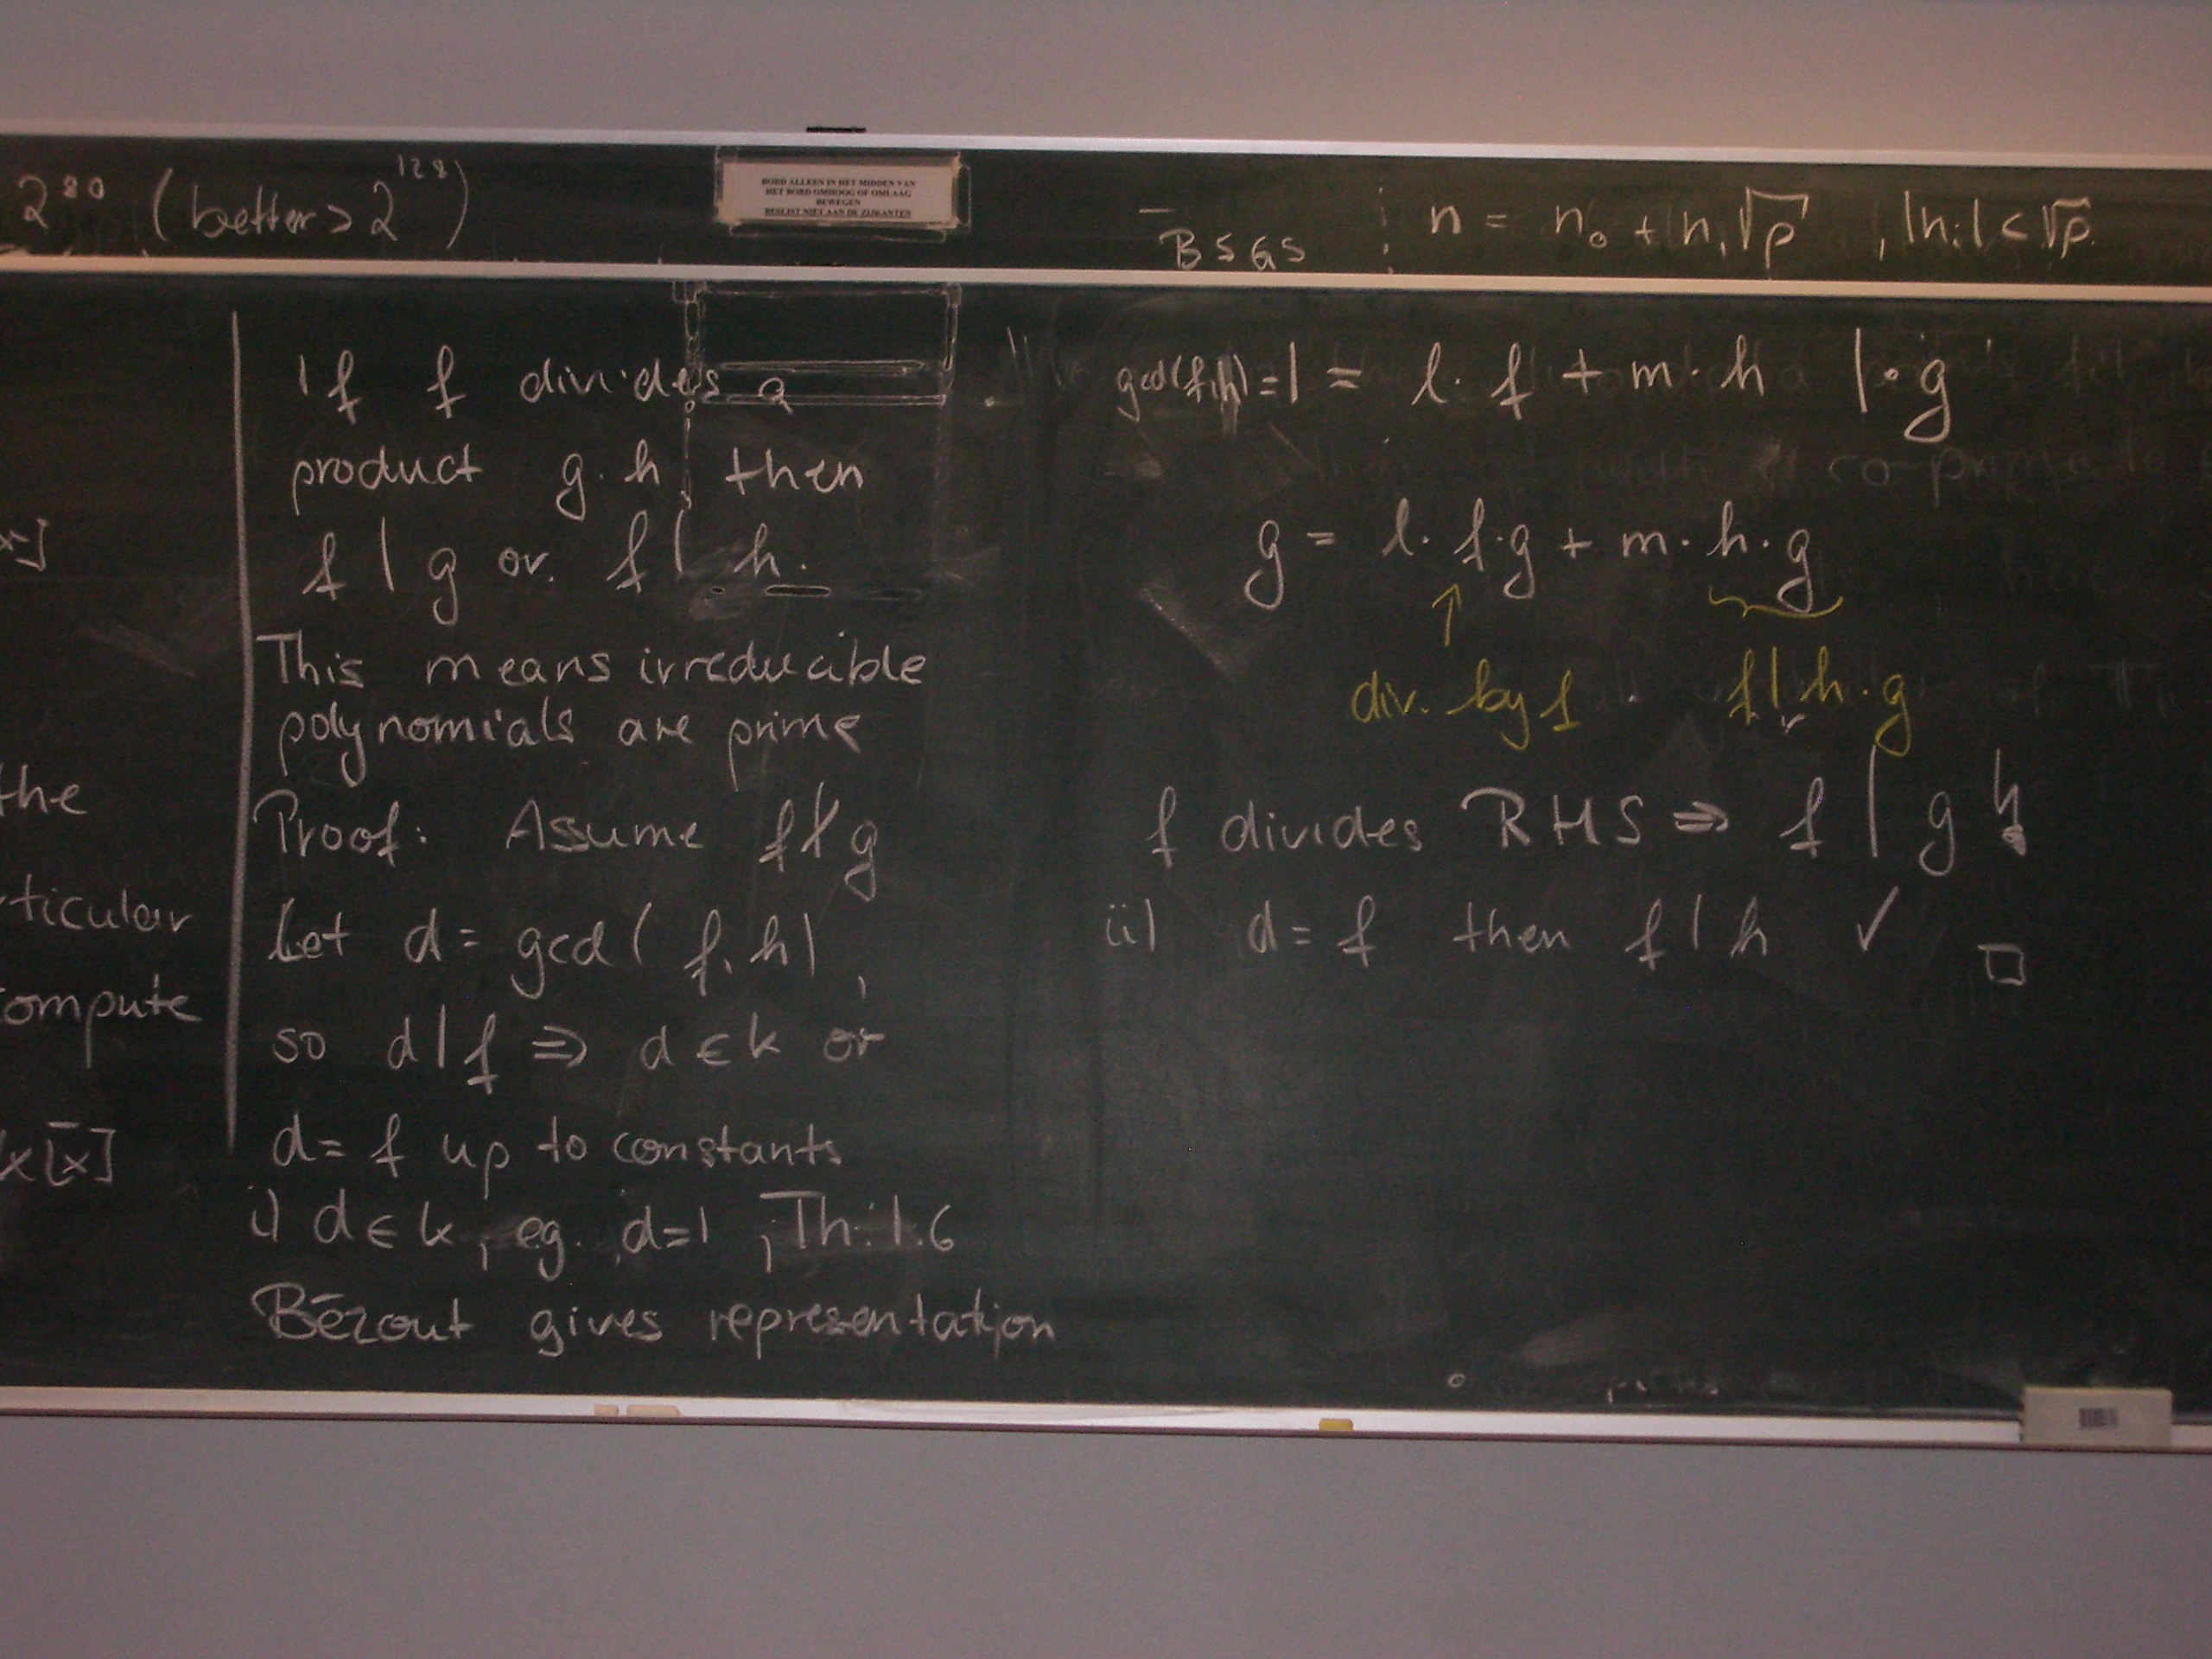 2^80 (better > 2^128)
BORD ALLEEN IN HET MIDDEN VAN
HET BORD OMHOOG OF OMLAAG
BEWEGEN
BESLIST NIET AAN DE ZIJKANTEN
BSGS
n = n₀ + n₁√p , |nᵢ| < √p
x]
the
rticular
compute
k[x]
If f divides a
product g·h then
f | g or f | h.
This means irreducible
polynomials are prime
Proof: Assume f∤g
Let d = gcd(f,h),
so d|f ⇒ d ∈ k or
d = f up to constants
i) d ∈ k, eg. d=1, Th. 1.6
Bézout gives representation
gcd(f,h)=1 = l·f + m·h |·g
g = l·f·g + m·h·g
↑
div. by f f|h·g
f divides RHS ⇒ f | g ↯
ii) d = f then f | h ✓ □